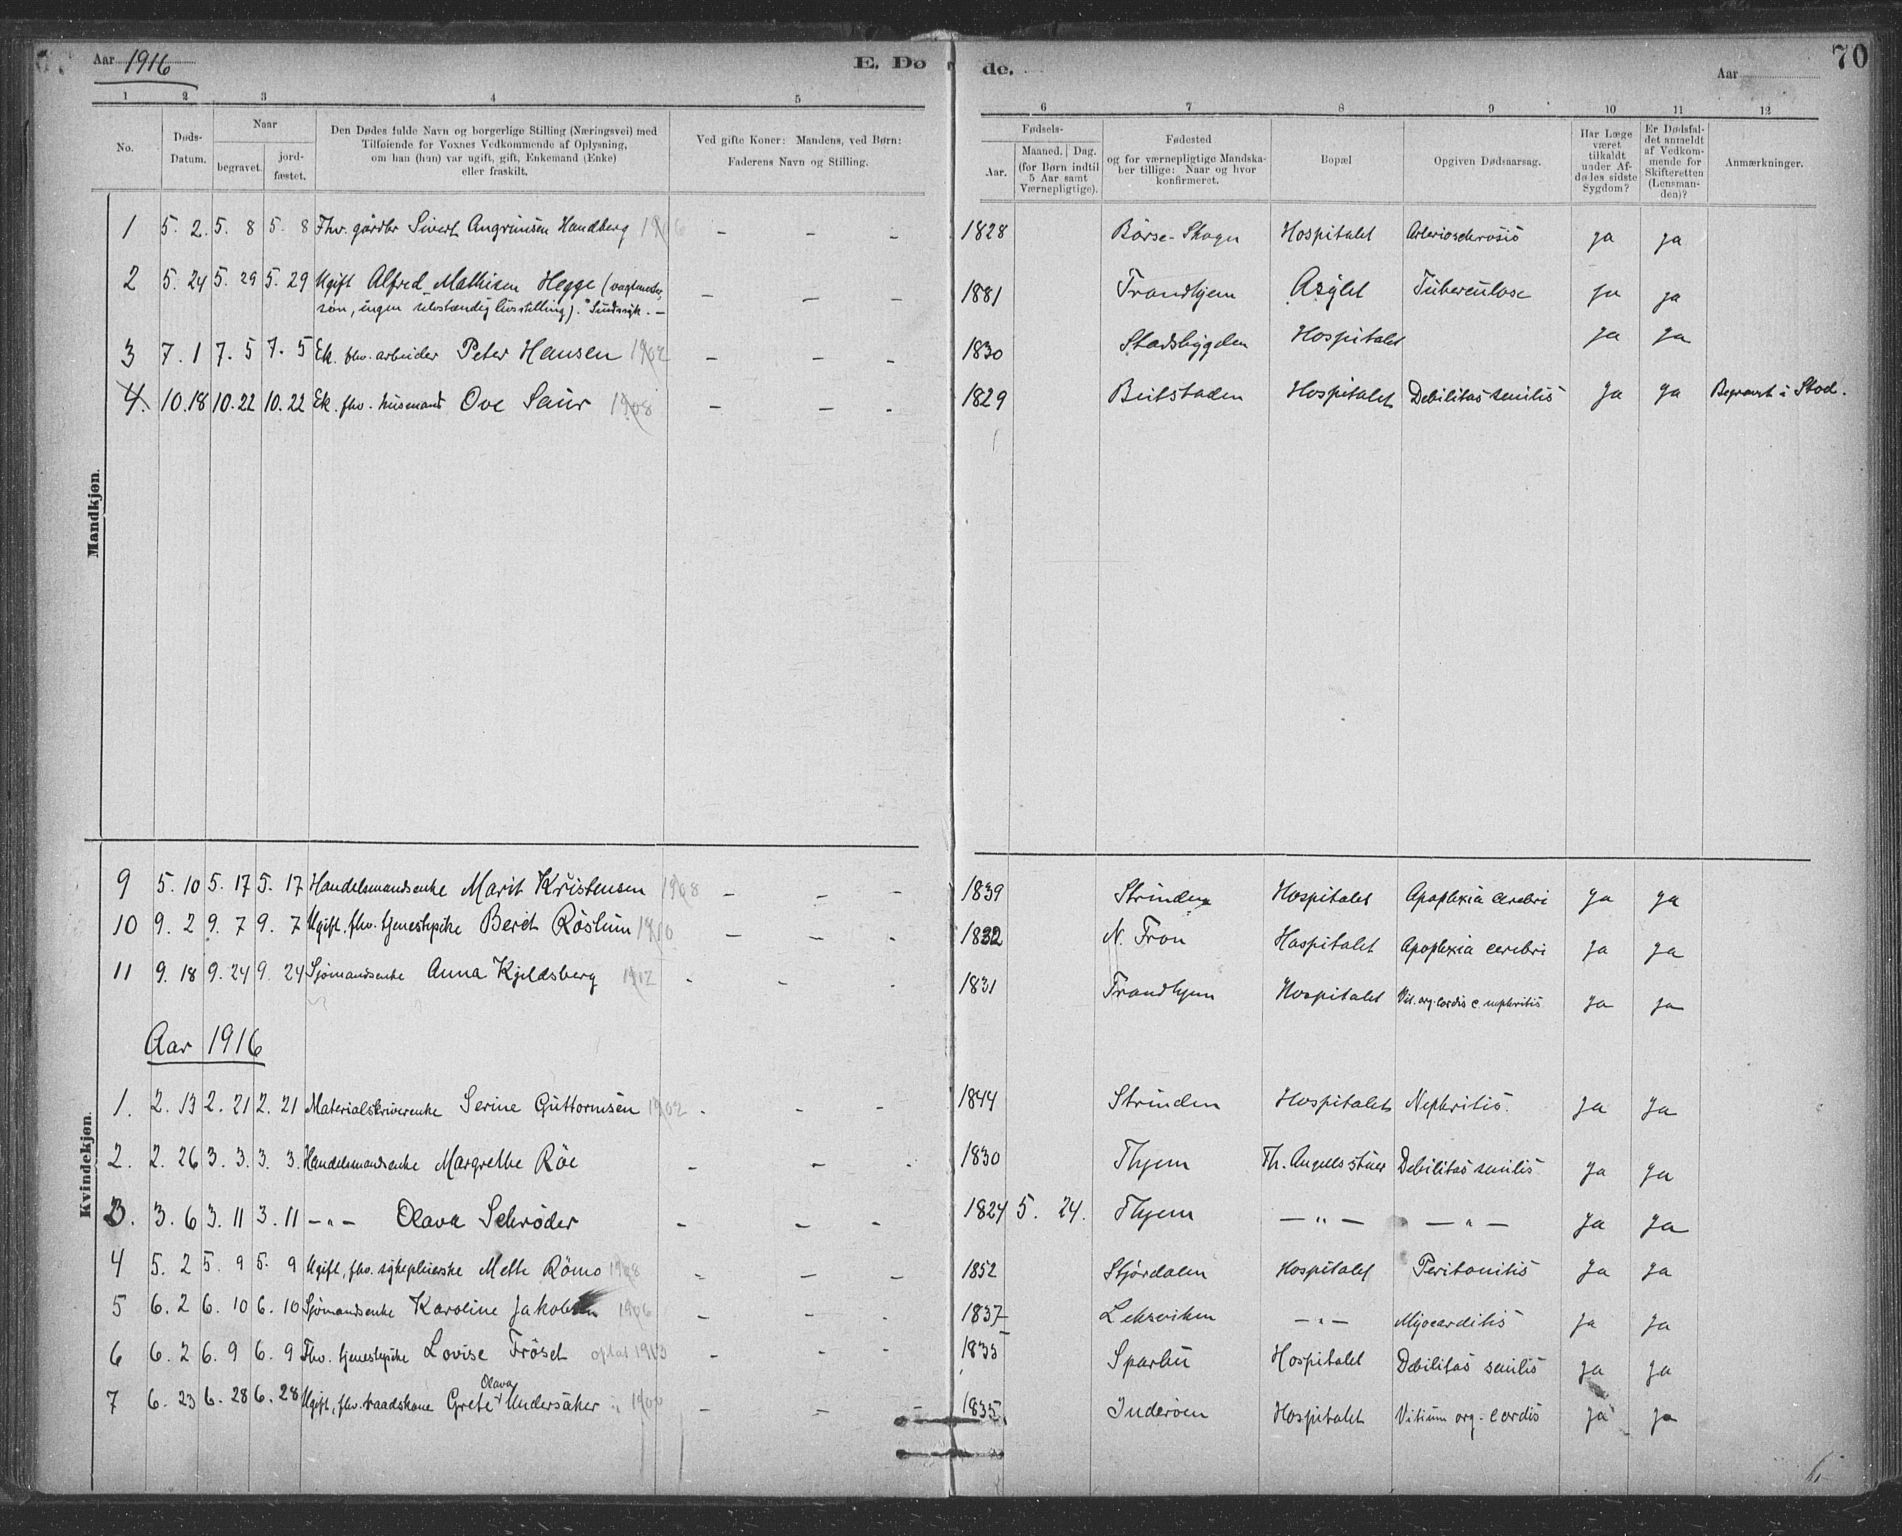 Aar 1916 E. Dø de. Aar 70
1 2 3 4 5 6 7 8 9 10 11 12
No.
Døds-
Datum.
Naar
begravet.
jord-
fæstet.
Den Dødes fulde Navn og borgerlige Stilling (Næringsvei) med
Tilføiende for Voxnes Vedkommende af Oplysning,
om han (hun) var ugift, gift, Enkemand (Enke)
eller fraskilt.
Ved gifte Koner: Mandens, ved Børn:
Faderens Navn og Stilling.
Fødsels-
Aar.
Maaned. Dag.
(for Børn indtil
5 Aar samt
Værnepligtige).
Fødested
og for værnepligtige Mandska-
ber tillige: Naar og hvor
konfirmeret.
Bopæl
Opgiven Dødsaarsag.
Har Læge
været
tilkaldt
under Af-
dødes sidste
Sygdom?
Er Dødsfal-
det anmeldt
af Vedkom-
mende for
Skifteretten
(Lensman-
den)?
Anmærkninger.
Mandkjøn.
1 5. 2. 5. 8 5. 8 Fhv. gårdbr Sivert Angrimsen Handberg 1906 – – – 1828 Börse-Skogn Hospitalet Arteriosclerosis ja ja
2 5. 24 5. 29 5. 29 Ugift Alfred Mathisen Hegge (vagtmester- – – – 1881 Trondhjem Asylet Tuberculose ja ja
søn, ingen selvstændig livsstilling). Sindssyk. –
3 7. 1 7. 5 7. 5 Ek. fhv. arbeider Peter Hansen 1902 – – – 1830 Stadsbygden Hospitalet ja ja
4. 10.18 10.22 10.22 Ek. fhv. husmand Ove Saur 1908 – – – 1829 Beitstaden Hospitalet Debilitas senilis Ja ja Begravet i Stod.
Kvindekjøn.
9 5. 10 5. 17 5. 17 Handelsmandsenke Marit Kristensen 1908 – – – 1839 Strinden Hospitalet Apoplexia cerebri ja ja
10 9. 2 9. 7 9. 7 Ugift, fhv. tjenestepike Berit Röslum 1910 – – – 1832 N. Fron Hospitalet Apoplexia cerebri ja ja
11 9. 18 9. 24 9. 24 Sjømandsenke Anna Kjeldsberg 1912 – – – 1831 Trondhjem Hospitalet Vit. org. cordis c. nephritis ja ja
Aar 1916
1. 2. 13 2. 21 2. 21 Materialskriverenke Serine Guttormsen 1902 – – – 1844 Strinden Hospitalet Nephritis. ja ja
2. 2. 26 3. 3. 3. 3. Handelsmandsenke Margrethe Röe – – – 1830 Thjem Th. Angells stuer Debilitas senilis ja ja
3. 3. 6 3. 11 3. 11 – " – Olava Schrøder – – – 1824 5. 24. Thjem – " – – " – ja ja
4 5. 2 5. 9 5. 9 Ugift, fhv. sykepleierske Mette Römo 1908 – – – 1852 Stjördalen Hospitalet Peritonitis ja ja
5 6. 2 6. 10 6. 10 Sjømandsenke Karoline Jakobsen 1906 – – – 1837 Leksviken – " – Myocarditis ja ja
6 6. 2 6. 9 6. 9 Fhv. tjenestepike Lovise Fröset optat 1903 – – – 1835 Sparbu Hospitalet Debilitas senilis ja ja
Olava
7 6. 23 6. 28 6. 28 Ugift, fhv. Grete Undersåker 1900 – – – 1835 Inderöen Hospitalet Vitium org. cordis ja ja